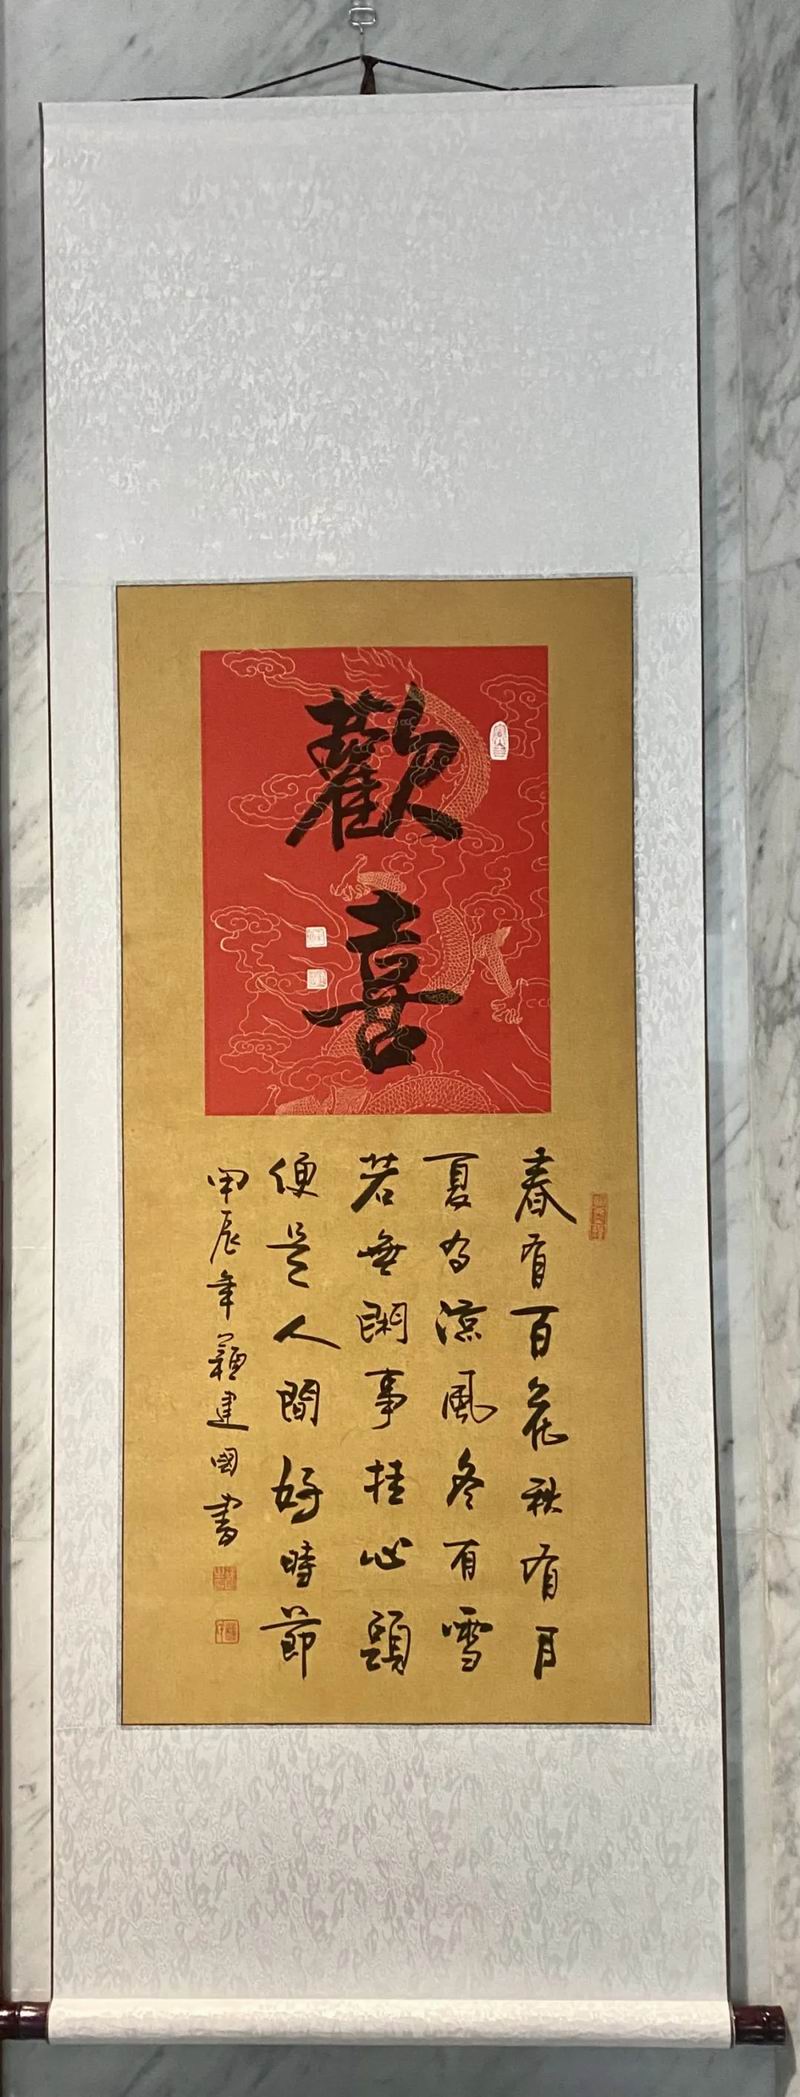 歡喜
春有百花秋有月
夏有涼風冬有雪
若無閑事挂心頭
便是人間好時節
甲辰年建國書